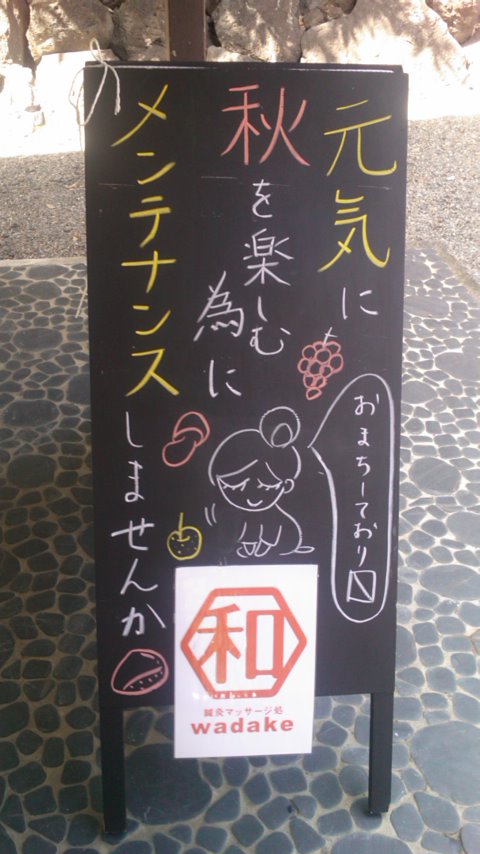 元気に
秋を楽しむ
為に
メンテナンス
しませんか
おまちしており〼
和
鍼灸マッサージ処
wadake